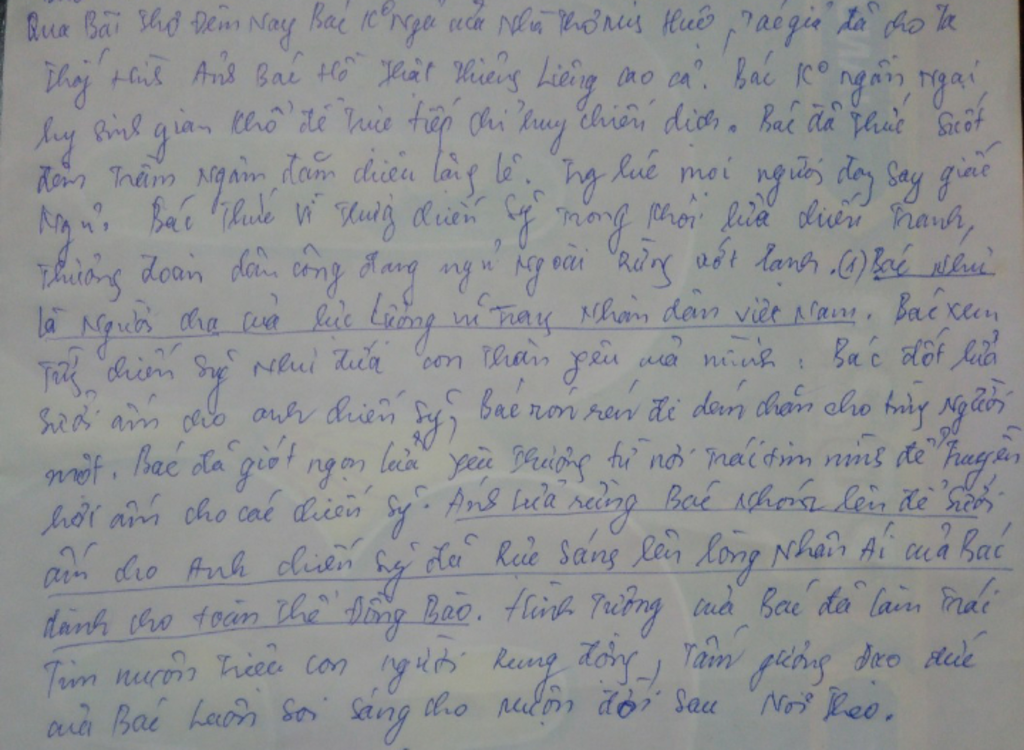 Qua Bài thơ Đêm Nay Bác K° Ngủ của Nhà Thơ Minh Huệ, Tác giả đã cho Ta
thấy Hình Ảnh Bác Hồ thật thiêng Liêng cao cả. Bác K° ngần Ngại
hy sinh gian khổ để trực tiếp chỉ huy chiến dịch. Bác đã thức suốt
đêm trầm Ngâm đăm chiêu lặng lẽ. Trg lúc mọi người đag say giấc
Ngủ. Bác thức vì thươg chiến sỹ trong khói lửa chiến tranh,
thương đoàn dân công đang ngủ ngoài rừng ướt lạnh. (1) Bác như
là Người cha của lực Lượng vũ trag Nhân dân việt Nam. Bác xem
từg chiến sỹ Như đứa con thân yêu của mình. Bác đốt lửa
sưởi ấm cho anh chiến sỹ, Bác rón rén đi dém chăn cho từg Người
một. Bác đã giót ngọn lửa yêu thương từ nơi trái tim mình để truyền
hơi ấm cho các chiến sỹ. Ánh lửa rừng Bác Nhóm lên để sưởi
ấm cho Anh chiến sỹ đã Rực sáng lên lòng Nhân Ái của Bác
dành cho toàn thể Đồng Bào. Hình Tượng của Bác đã làm Trái
Tim muôn triệu con người Rung động, Tấm gương đạo đức
của Bác Luôn soi sáng cho muôn đời sau Noi theo.